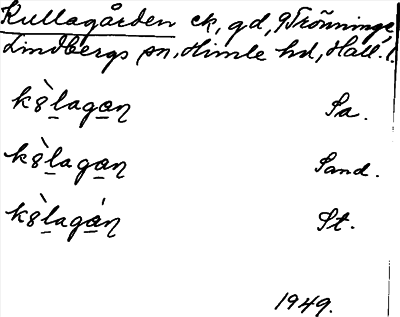 Kullagården ck, gd, Trönninge,
Lindbergs sn, Himle hd, Hall. l.
kȣ̀lagan̥ Sa.
kȣ̀lagan̥ Sand.
kȣ̀lagán̥ St.
1949.